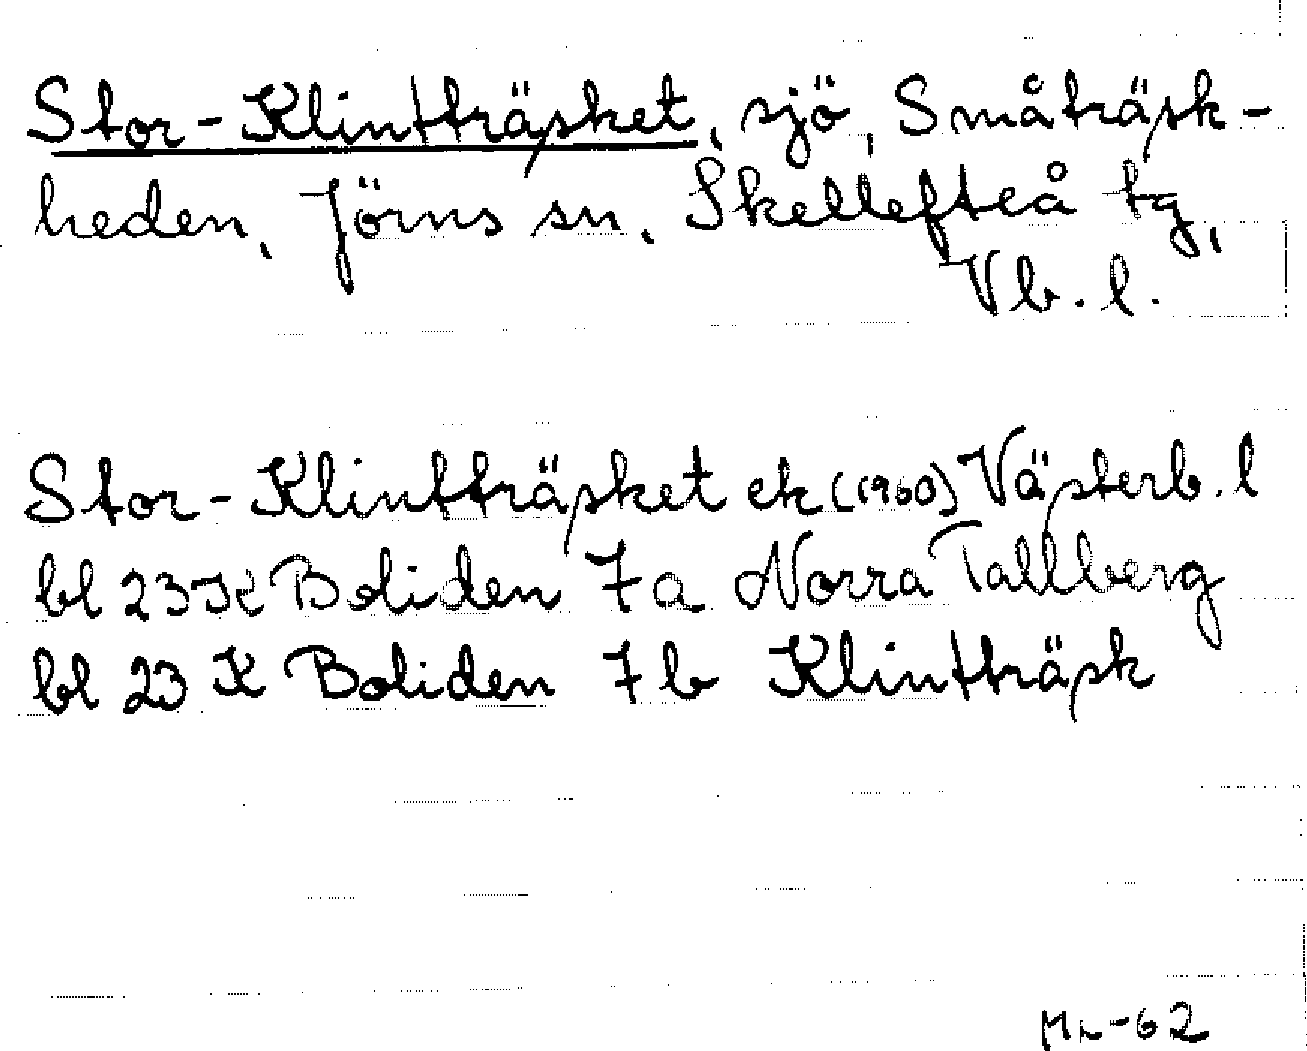 Stor-Klintträsket, sjö, Småträsk-
heden, Jörns sn, Skellefteå tg,
Vb. l.
Stor-Klintträsket ek (1960) Västerb. l
bl 23 K Boliden 7 a Norra Tallberg
bl 23 K Boliden 7 b Klintträsk
-62